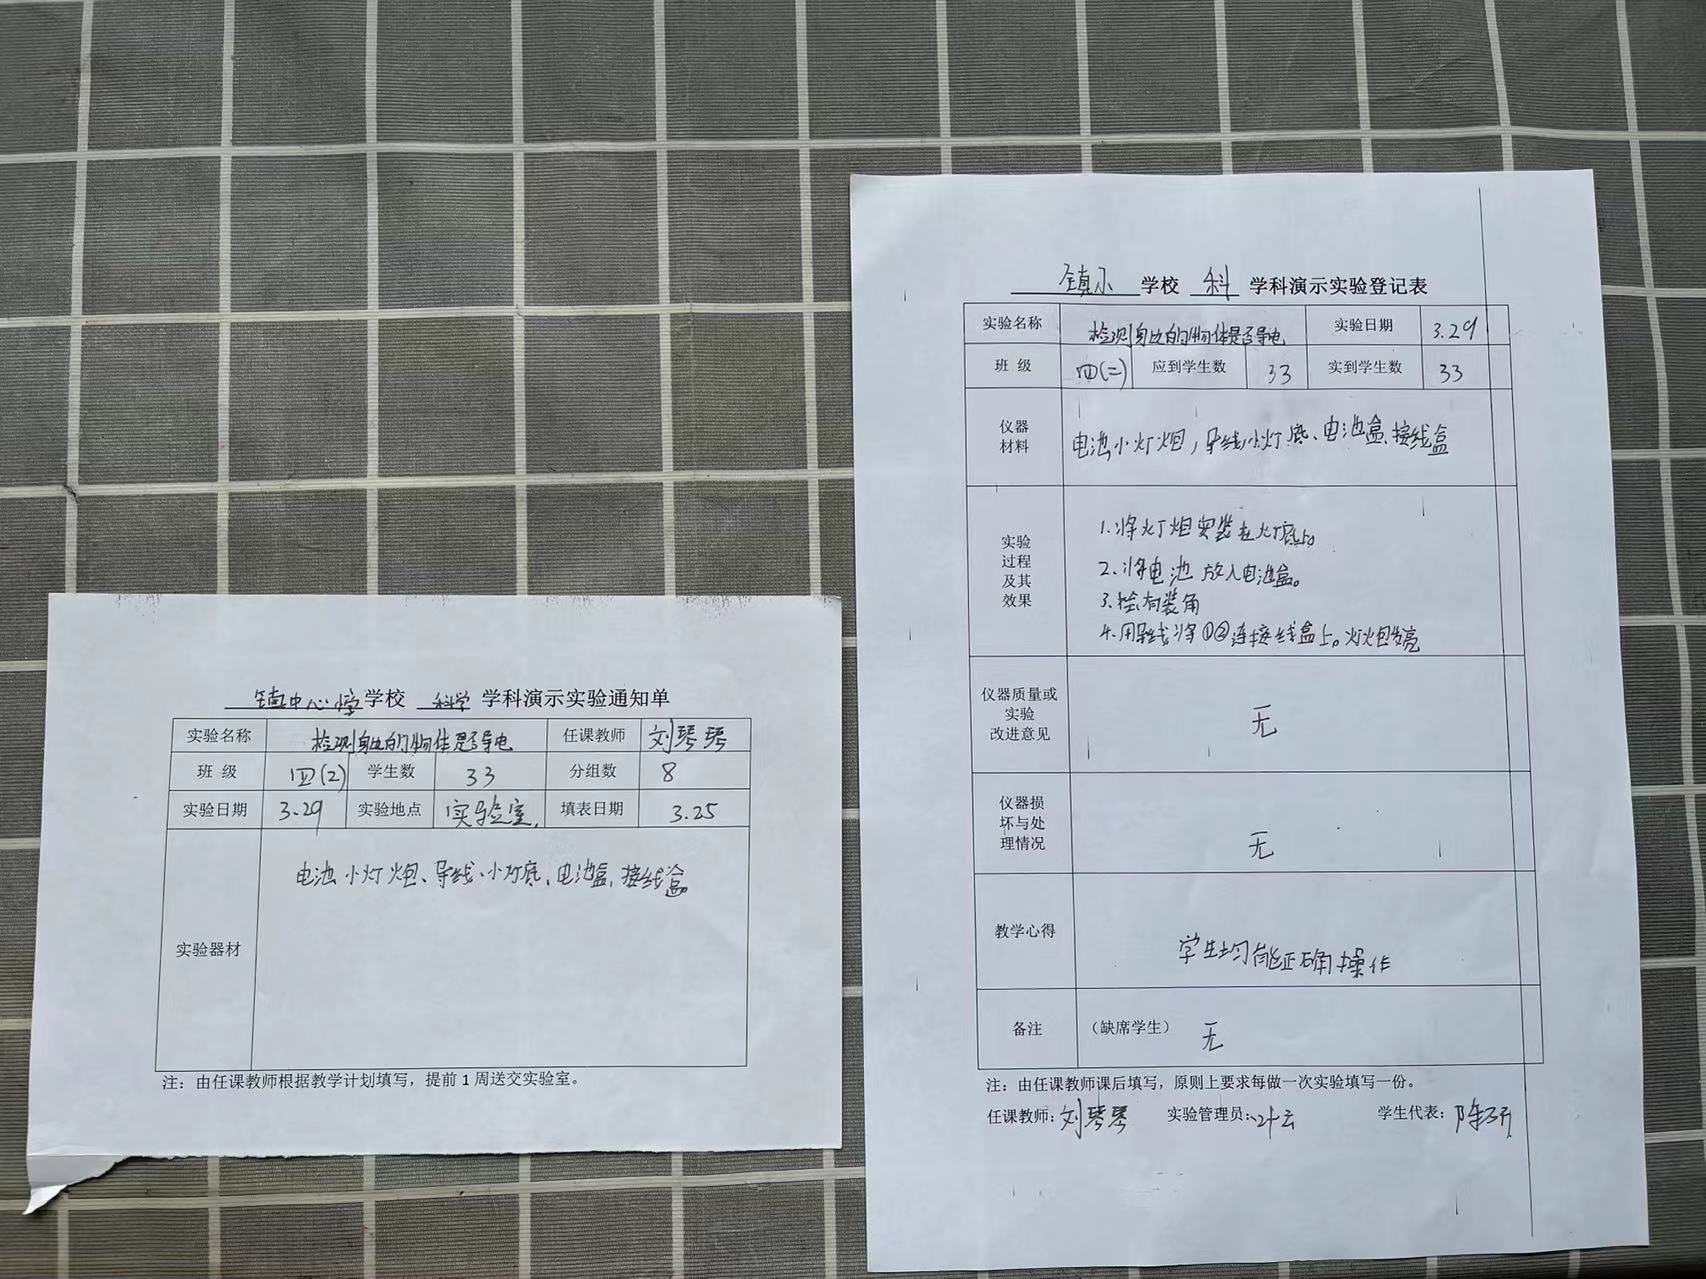 镇中心学校 科学 学科演示实验通知单
实验名称 检测身边的物体是否导电 任课教师 刘琴琴
班 级 四(2) 学生数 33 分组数 8
实验日期 3.29 实验地点 实验室. 填表日期 3.25
实验器材 电池 小灯炮、导线、小灯底、电池盒,接线盒
注：由任课教师根据教学计划填写，提前1周送交实验室。
镇小 学校 科 学科演示实验登记表
实验名称 检测身边的物体是否导电 实验日期 3.29
班 级 四(二) 应到学生数 33 实到学生数 33
仪器
材料
电池小灯炮，导线小灯底、电池盒、接线盒
实验
过程
及其
效果
1.将灯炮安装在灯底上。
2.将电池 放入电池盒。
3.检查装角
4.用导线将①②连接线盒上。灯炮发亮
仪器质量或
实验
改进意见
无
仪器损
坏与处
理情况
无
教学心得 学生均能正确操作
备注 （缺席学生） 无
注：由任课教师课后填写，原则上要求每做一次实验填写一份。
任课教师：刘琴琴 实验管理员： 学生代表：